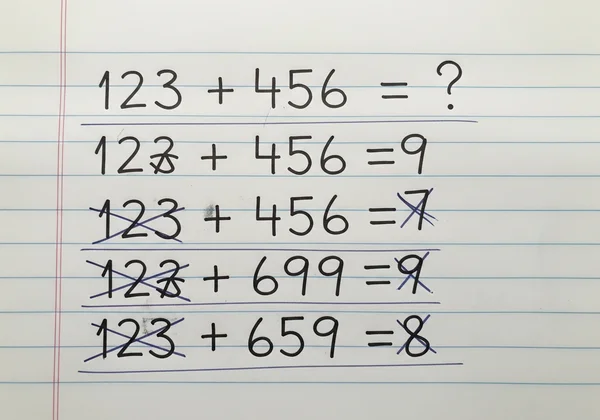 123 + 456 = ?
123 + 456 = 9
123 + 456 = 7
123 + 699 = 9
123 + 659 = 8